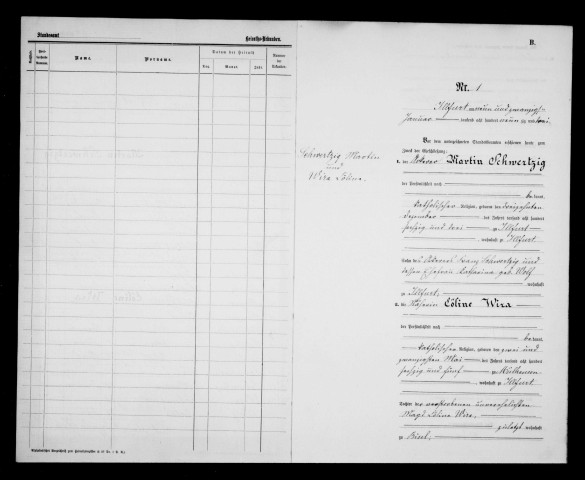 Standesamt
Heiraths-Urkunden.
Name.
Vorname.
Datum der Heirath
Tag.
Monat.
Jahr.
Nummer der Urkunde.
Schwertzig Martin
und
Wira Cöline.
B.
Nr. 1
Illfurt am neun und zwanzigsten
Januar tausend acht hundert neunzig und drei.
Vor dem unterzeichneten Standesbeamten erschienen heute zum
Zweck der Eheschließung:
1. der Ackerer Martin Schwertzig
der Persönlichkeit nach
be kannt,
katholischer Religion, geboren den dreizehnten
Dezember des Jahres tausend acht hundert
sechzig und drei zu Illfurt
, wohnhaft zu Illfurt
Sohn des Ackerers Franz Schwertzig und
dessen Ehefrau Katharina geb. Wolf
wohnhaft
zu Illfurt,
2. die Näherin Cöline Wira
der Persönlichkeit nach
be kannt,
katholischer Religion, geboren den zwei und
zwanzigsten Mai des Jahres tausend acht hundert
sechzig und fünf zu Mülhausen
, wohnhaft zu Illfurt
Tochter der verstorbenen unverehelichten
Magd Cöline Wira,
zuletzt wohnhaft
zu Bisel.